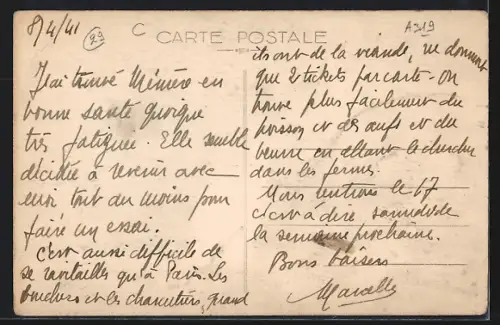 8/4/41
29
C
A319
CARTE POSTALE
J'ai trouvé Mémère en
bonne santé quoique
très fatiguée. Elle semble
décidée à revenir avec
moi tout du moins pour
faire un essai.
C'est aussi difficile de
se ravitailler qu'à Paris. Les
bouchers et les charcutiers, quand
ils ont de la viande, ne donnent
que 2 tickets par carte - On
trouve plus facilement du
poisson et des œufs et du
beurre en allant le chercher
dans les fermes.
Nous rentrons le 17
c'est à dire
la semaine prochaine.
Bons baisers
Marcelle